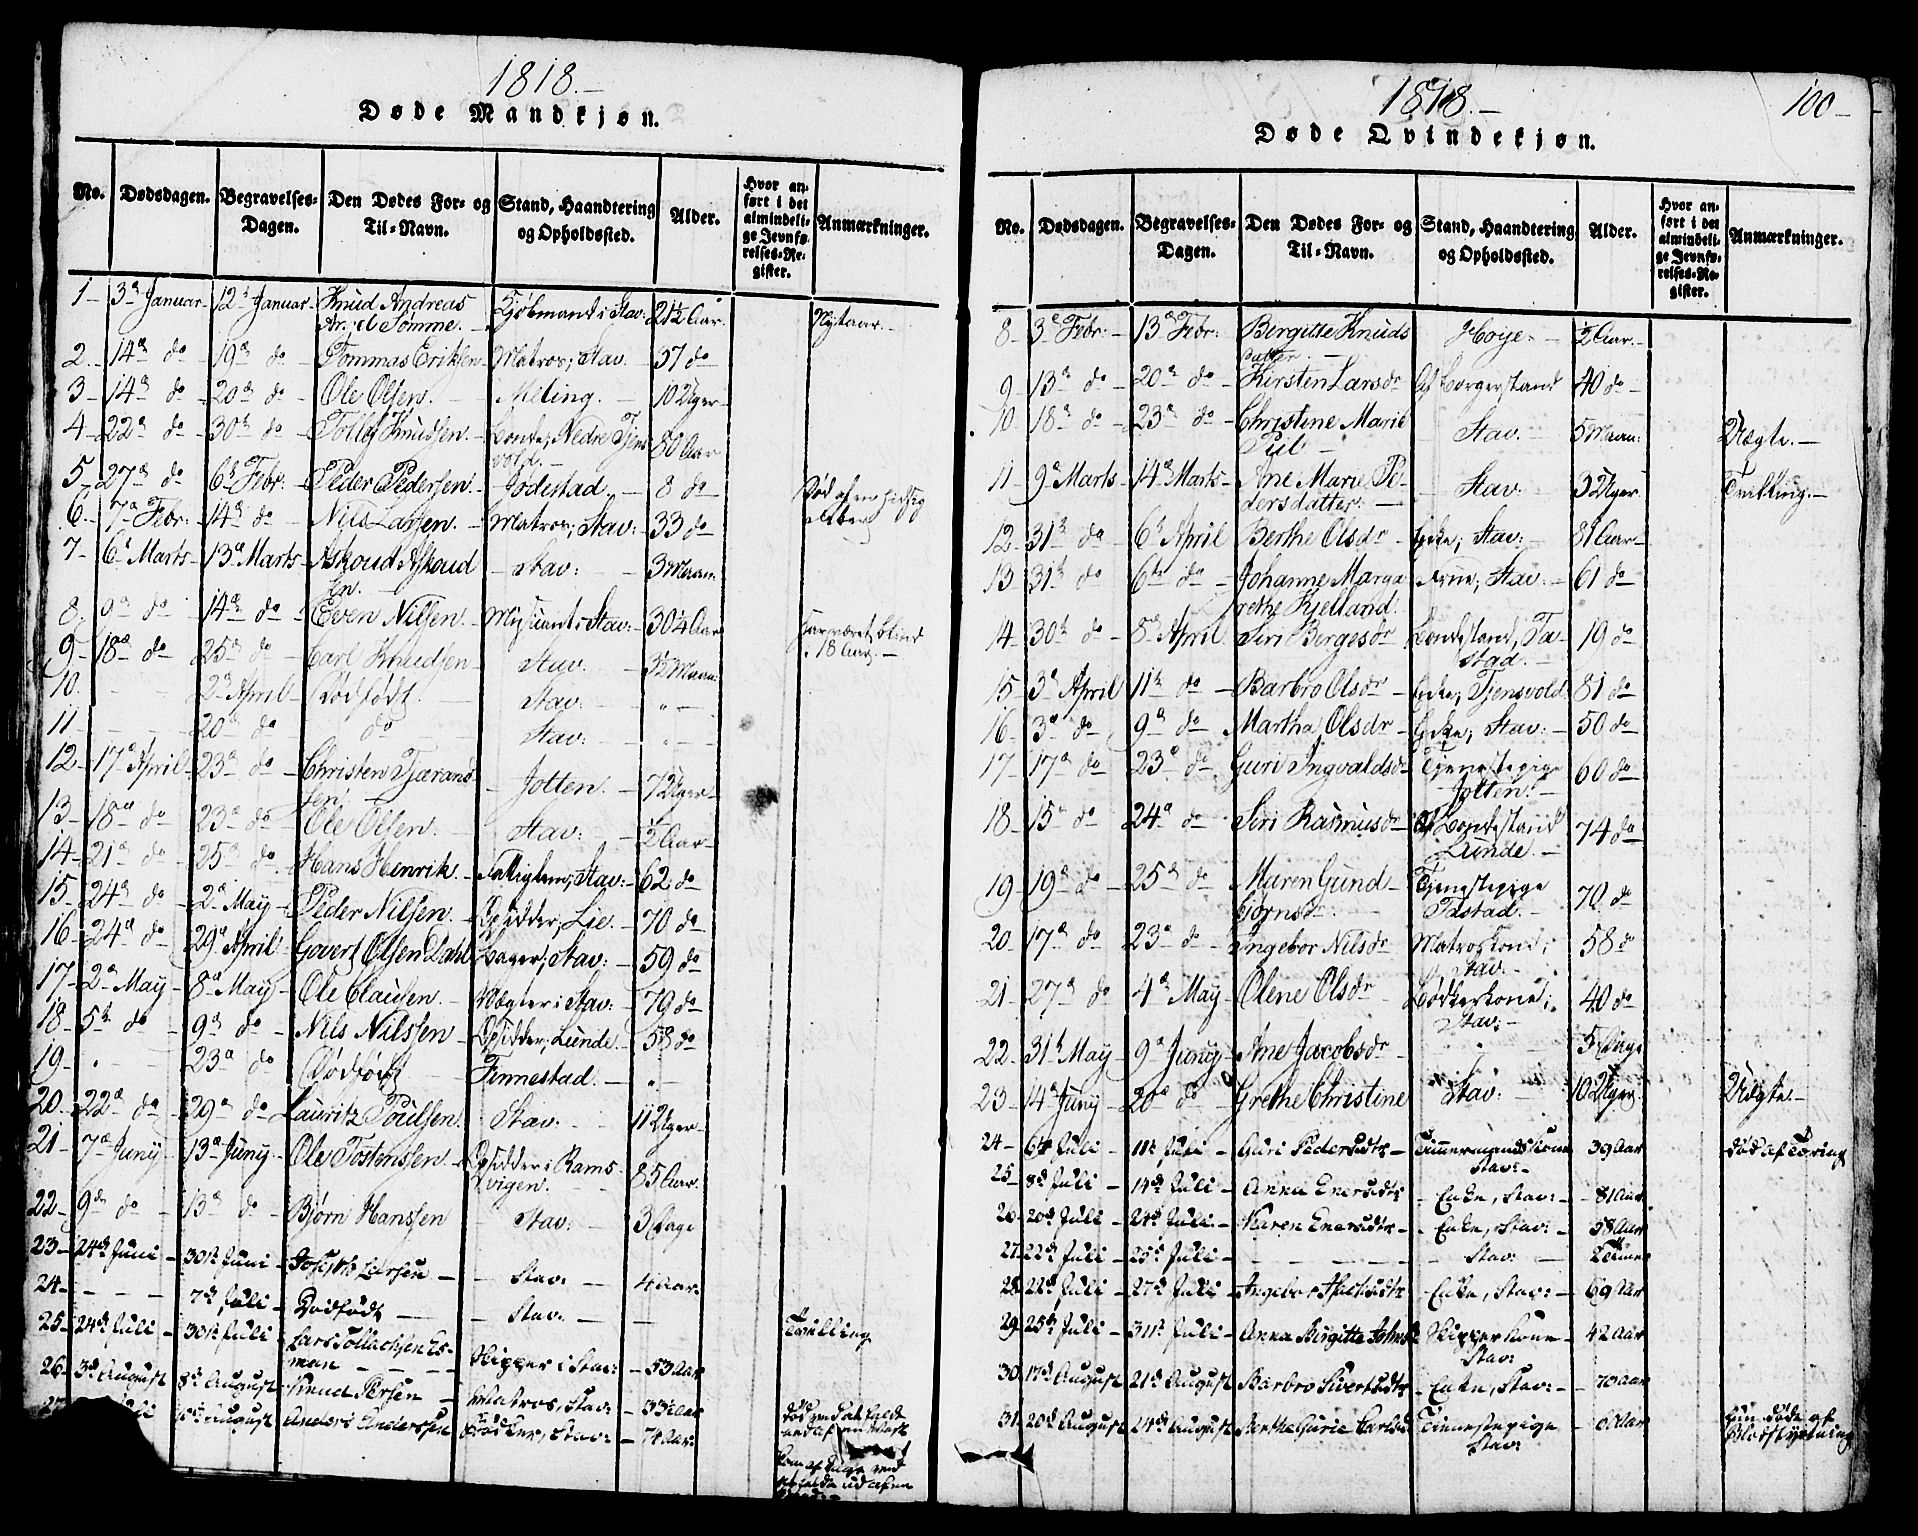 1818.-
Døde Mandkjøn.
No. Dødsdagen. Begravelses-Dagen. Den Dødes For- og Til-Navn. Stand, Haandtering og Opholdssted. Alder. Hvor anført i det almindelige Jevnførelses-Register. Anmærkninger.
1 - 3d Januar - 12t Januar - Knud Andreas Sømme. - Kjøbmand i Stav: 21½ Aar. Nytaar. -
2 - 14de do - 19de do - Tommas Eriksen - Matros, Stav. - 37 do
3 - 14de do - 20de do - Ole Olsen. - Meling. - 10 Uger -
4 - 22de do - 30te do - Tollef Knudsen. - Nedre Tjensvold. - 80 Aar
5 - 27de do - 6te Febr: - Peder Pedersen. - Jodestad, - 8 do -
6 - 7de Febr: - 14de do - Nils Larsen. - Matros, Stav: - 33 do - Død af en hidsig Feber
7 - 6te Marts - 13de Marts - Askoud Askoudsen. - Stav: - 3 Maan:
8 do - 14de do - Even Nilsen. - Stav: - 30¼ Aar har været blind i 18 Aar. -
9 - 18de do - 25de do - Carl Knudsen - Stav. - 3½ Maan:
10. - 2d April - Dødfødt. - Stav. - " -
11 - - 20de do - do - Stav: - " -
12 - 17de April - 23de do - Christen Tjærandsen. - Jotten. - 7 Uger -
13 - 18de do - 23de do - Ole Olsen. - Stav: - ½ Aar -
14 - 21de do - 25de do - Hans Henrik. - Fattiglem, Stav: - 62 do
15 - 24de do - 2den May - Peder Nilsen. - Opsidder, Lie. - 70 do -
16 - 24de do - 29de April - Govert Olsen Dahl - Bager, Stav: - 59 do
17 - 2den May - 8de May - Ole Clausen. - Vægter i Stav: - 79 do -
18 - 5te do - 9de do - Nils Nilssen - Opsidder, Lunde. - 58 do
19 - " - 23de do - Dødfødt - Finnestad. - " -
20. - 22de do - 29de do - Lauritz Poulsen. - Stav: - 11 Uger -
21 - 7de Juny - 13de Juny - Ole Tostenssen. - Opsidder i Ramsvigen. - 85 Aar.
22 - 9de do - 13de do - Bjørn Hanssen - Stav: - 3 Dage
23 - 24de Juni - 30te Juni - Joseph Larsen - Stav: - 4 Aar:
24 - - 7de Juli - Dødfødt - Stav: -
25 - 24de Juli - 30te Juli - Lars Tollachsen Esman - Skipper i Stav: - 53 Aar Tvilling
26 - 3de August - 8de August - Knud Persen - Matros, Stav: - 33 Aar
27 Juli August Anders Anderssen Bødker, Stav: - 74 Aar:
1818.-
100 -
Døde Qvindekjøn.
No. Dødsdagen. Begravelses-Dagen. Den Dødes For- og Til-Navn. Stand, Haandtering og Opholdssted. Alder. Hvor anført i det almindelige Jevnførelses-Register. Anmærkninger.
8 - 3de Febr: - 13de Febr: - Bergitte Knudsdatter. - Høye. - ½ Aar -
9 - 13de do - 20de do - Kirsten Larsdr - Af Borgerstand - 40 do -
10 - 18de do - 23de do - Christine Marie - Stav. - 5 Maan: Uægte. -
11 - 9de Marts - 14de Marts - Ane Marie Pedersdatter. - Stav: - 3 Uger Tvilling. -
12 - 31te do - 6te April - Berthe Olsdr - Enke, Stav: - 81 Aar -
13 - 31te do - 6te do - Johanne Margarethe Kjelland. - Frue, Stav: - 61 do -
14 - 30te do - 8de April - Siri Bergesdr - Bondestand, Tastad. - 19 do -
15 - 3de April - 11te do - Barbro Olsdr - Enke, Tjensvold. - 81 do
16 - 3de do - 9de do - Martha Olsdr - Enke, Stav: - 50 do
17 - 17de do - 23de do - Guri Ingvaldsdr - Tjenestepige Jotten. - 60 do -
18 - 15de do - 24de do - Siri Rasmusdr - Af Bondestand Lunde. - 74 do
19 - 19de do - 25de do - Maren Gundbjørnsdr. - Tjenestepige Tastad. - 70 do
20 - 17de do - 23de do - Ingebor Nilsdr - Matroskone, Stav. - 58 do
21 - 27de do - 4de May - Olene Olsdr - Bødkerkone, Stav: - 40 do
22 - 31te May - 9de Juny - Ane Jacobsdr - " - 5 Dage
23 - 14de Juny - 20de do - Grethe Christine - Stav: - 10 Uger. Uægte. -
24 - 6te Juli - 11te Juli - Guri Pedersdtr - Timmermands Kone Stav: - 39 Aar død af Tæring
25 - 8de Juli - 14de Juli - Anna Enersdtr - Enke, Stav: - 81 Aar
26 - 20de Juli - 24de Juli - Karen Enersdtr - Enke, Stav: - 58 Aar
27. 22de Juli - 25de Juli - Stav: - Timer
28 22de Juli - 27de Juli - Ingebor - Enke, Stav: - 69 Aar
29 - 25de Juli - 31te Juli - Anna Birgitte Johnsdr - Skipper Kone - Stav: 42 Aar
30. 17de August - 21de August - Barbro Sivertsdtr - Enke, Stav: - 70 Aar
31. 20de August - 24de August - Berthe Gurie Carlsdr Tienestepige Stav: - Aar Hun døde af Blodstyrtning